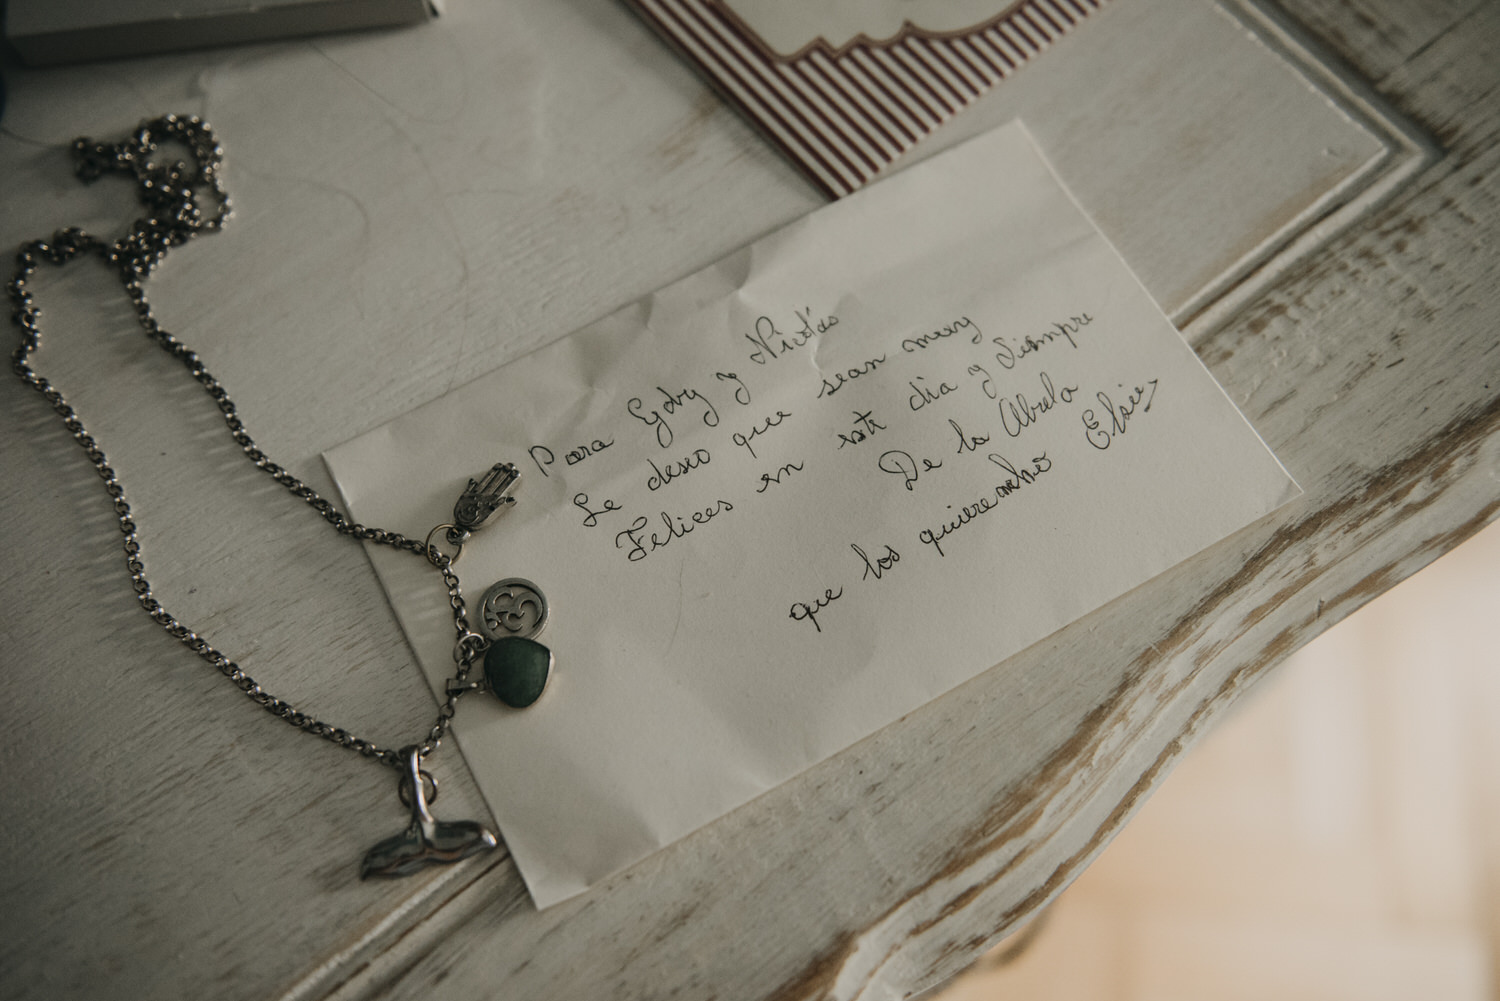 Para Gaby y Nicolás
Le deseo que sean muy
Felices en este dia y Siempre
De la Abuela Elsie,
que los quiere mucho